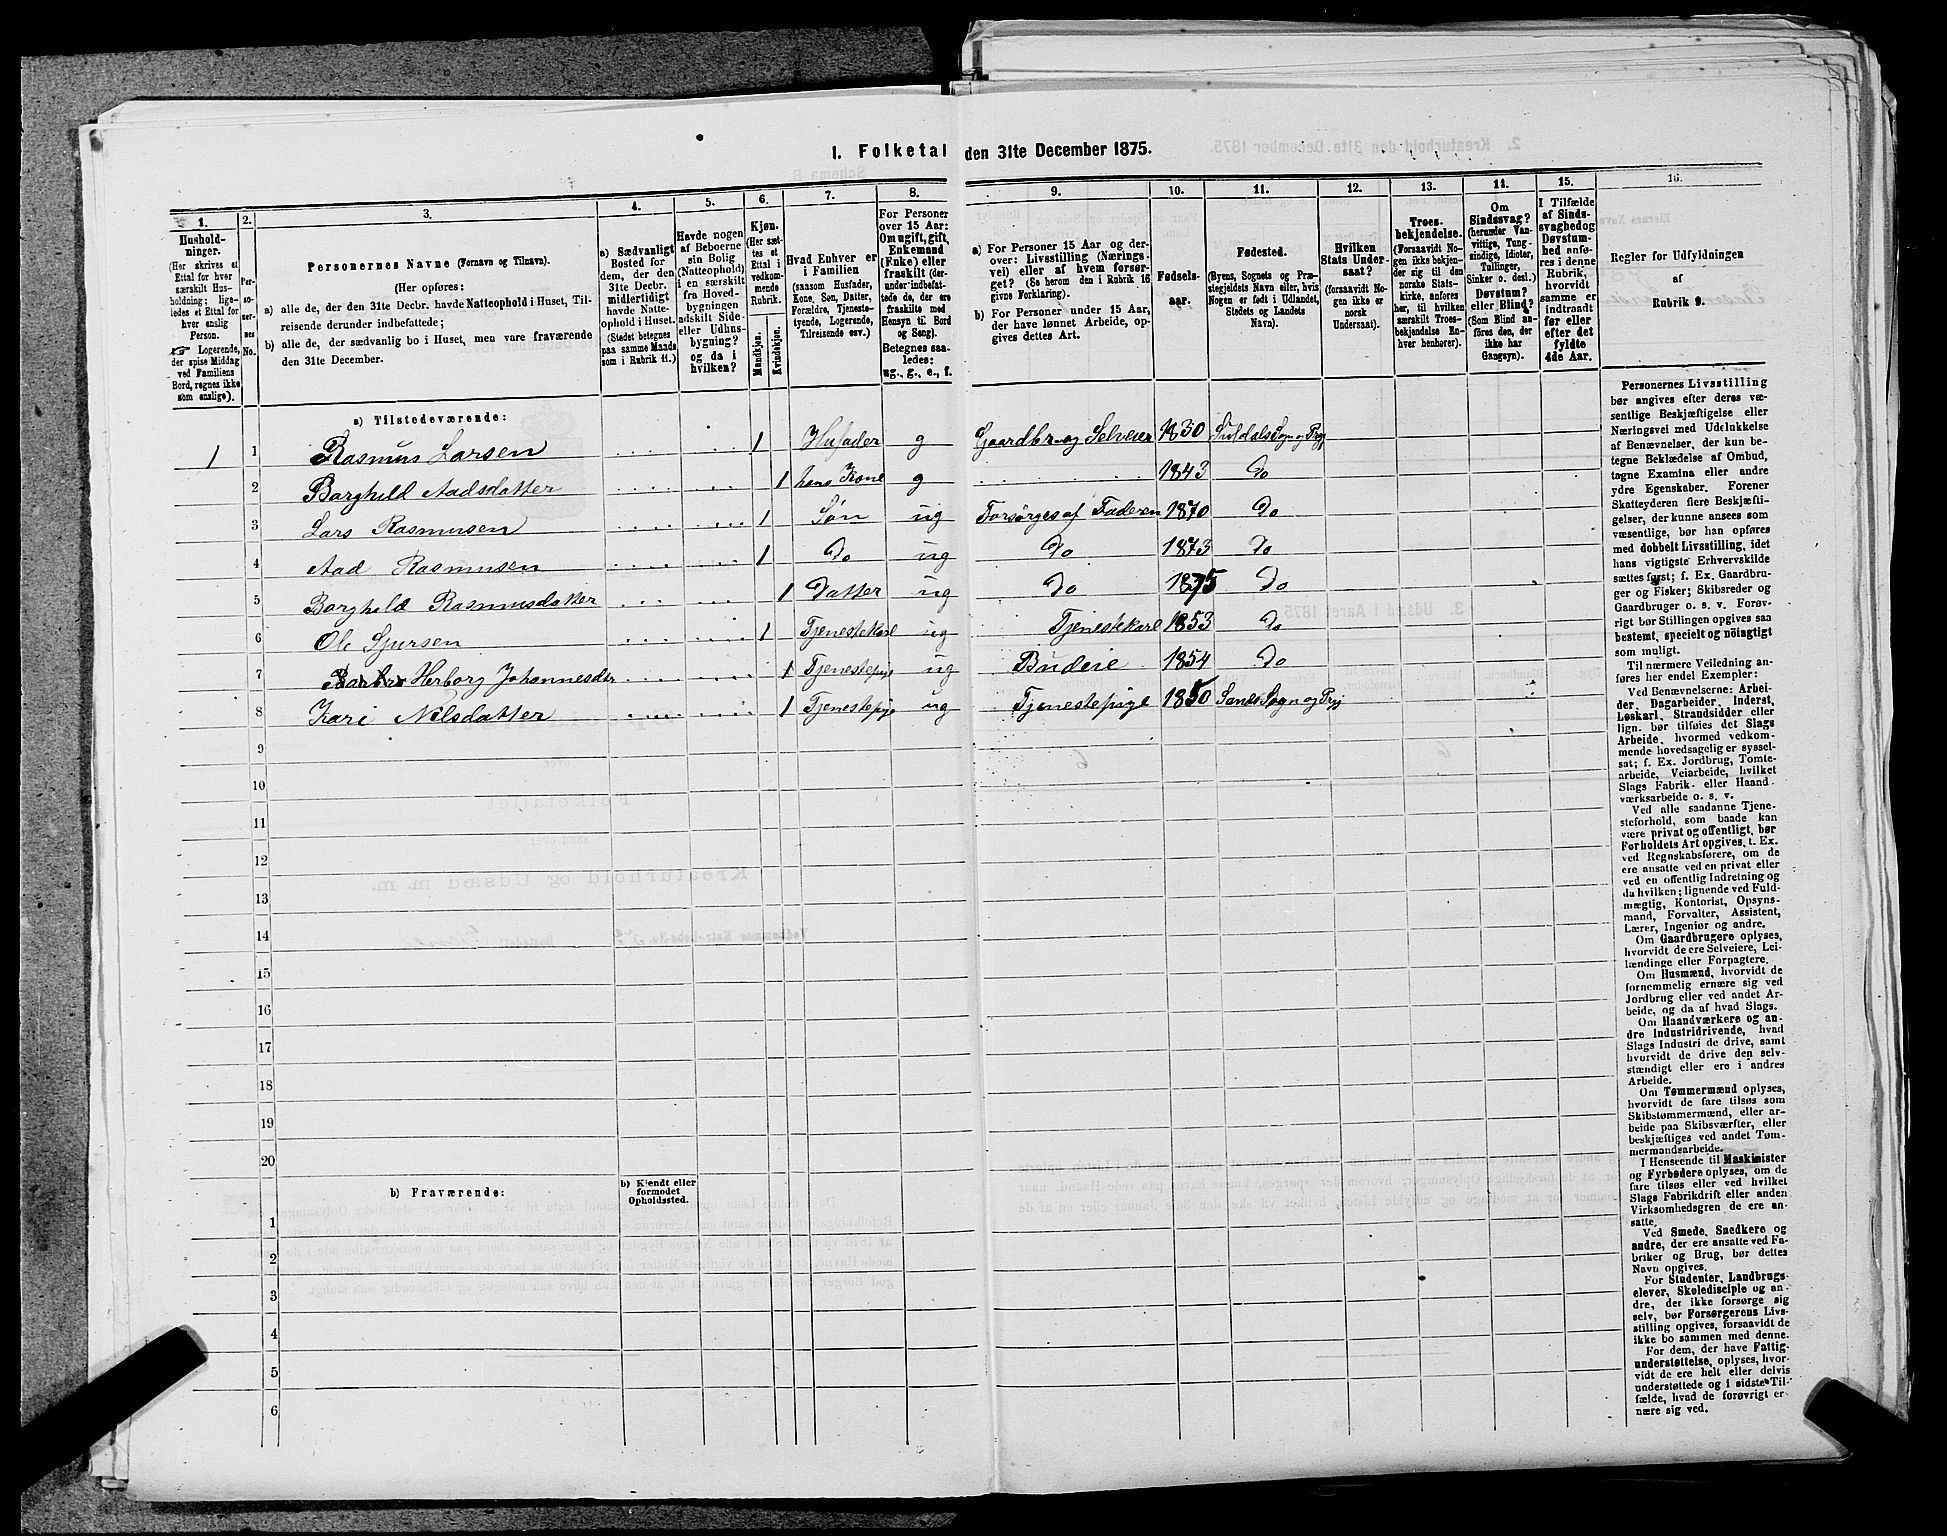 1. Folketal den 31te December 1875.
1.
2.
3.
4.
5.
6.
7.
8.
9.
10.
11.
12.
13.
14.
15.
16.
Hushold-
ninger.
(Her skrives et
Ettal for hver
særskilt Hus-
holdning; lige-
ledes et Ettal for
hver enslig
Person.
☞ Logerende,
der spise Middag
ved Familiens
Bord, regnes ikke
som enslige).
Per-
so-
ner-
nes
No.
Personernes Navne (Fornavn og Tilnavn).
(Her opføres:
a) alle de, der den 31te Decbr. havde Natteophold i Huset, Til-
reisende derunder indbefattede;
b) alle de, der sædvanlig bo i Huset, men vare fraværende
den 31te December.
a) Sædvanligt
Bosted for
dem, der den
31te Decbr.
midlertidigt
havde Natte-
ophold i Huset.
(Stedet betegnes
paa samme Maade
som i Rubrik 11.)
Havde nogen
af Beboerne
sin Bolig
(Natteophold)
i en særskilt
fra Hoved-
bygningen
adskilt Side-
eller Udhus-
bygning?
og da i
hvilken?
Kjøn.
(Her sæt-
tes et
Ettal i
vedkom-
mende
Rubrik.
Mandkjøn.
Kvindekjøn.
Hvad Enhver er
i Familien
(saasom Husfader,
Kone, Søn, Datter,
Forældre, Tjeneste-
tyende, Logerende,
Tilreisende osv.)
For Personer
over 15 Aar:
Om ugift, gift,
Enkemand
(Enke) eller
fraskilt (der-
under indbefat-
tede de, der ere
fraskilte med
Hensyn til Bord
og Seng).
Betegnes saa-
ledes:
ug., g., e., f.
a) For Personer 15 Aar og der-
over: Livsstilling (Nærings-
vei) eller af hvem forsør-
get? (Se herom den i Rubrik 16
givne Forklaring).
b) For Personer under 15 Aar,
der have lønnet Arbeide, op-
gives dettes Art.
Fødsels-
aar.
Fødested.
(Byens, Sognets og Præ-
stegjeldets Navn eller, hvis
Nogen er født i Udlandet,
Stedets og Landets
Navn).
Hvilken
Stats Under-
saat?
(forsaavidt No-
gen ikke er
norsk
Undersaat).
Troes-
bekjendelse.
(Forsaavidt No-
gen ikke bekjen-
der sig til den
norske Stats-
kirke, anføres
her, til hvilken
særskilt Troes-
bekjendelse En-
hver henhører).
Om
Sindssvag?
(herunder Van-
vittige, Tung-
sindige, Idioter,
Tullinger,
Sinker o. desl.)
Døvstum?
eller Blind?
(Som Blind an-
føres den, der
ikke har
Gangsyn).
I Tilfælde
af Sinds-
svaghed og
Døvstum-
hed anfø-
res i denne
Rubrik,
hvorvidt
samme er
indtraadt
før eller
efter det
fyldte
4de Aar.
Regler for Udfyldningen
af
Rubrik 9.
a) Tilstedeværende:
1 1 Rasmus Larsen 1 Husfader g Gaardbr og Selveier 1830 Suldals Sogn og Prgj
2 Borghild Aadsdatter 1 hans Kone g 1843 Do
3 Lars Rasmusen 1 Søn ug Forsørges af Faderen 1870 Do
4 Aad Rasmusen 1 Do ug Do 1873 Do
5 Borghild Rasmusdatter 1 Datter ug Do 1875 Do
6 Ole Sjursen 1 Tjenestekarl ug Tjenestekarl 1853 Do
7 Herborg Johannesdtr 1 Tjenestepige ug Budeie 1854 Do
8 Kari Nilsdatter 1 Tjenestepige ug Tjenestepige 1850 Sands Sogn og Prgj
9
10
11
12
13
14
15
16
17
18
19
20
b) Fraværende:
b) Kjendt eller
formodet
Opholdssted.
1
2
3
4
5
6
Personernes Livsstilling
bør angives efter deres væ-
sentlige Beskjæftigelse eller
Næringsvei med Udelukkelse
af Benævnelser, der kun be-
tegne Beklædelse af Ombud,
tagne Examina eller andre
ydre Egenskaber. Forener
Skatteyderen flere Beskjæfti-
gelser, der kunne ansees som
væsentlige, bør han opføres
med dobbelt Livsstilling, idet
hans vigtigste Erhvervskilde
sættes først; f. Ex. Gaardbru-
ger og Fisker; Skibsreder og
Gaardbruger o. s. v. Forøv-
rigt bør Stillingen opgives saa
bestemt, specielt og nøiagtigt
som muligt.
Til nærmere Veiledning an-
føres her endel Exempler:
Ved Benævnelserne: Arbei-
der, Dagarbeider, Inderst,
Løskarl, Strandsidder eller
lign. bør tilføies det Slags
Arbeide, hvormed vedkom-
mende hovedsagelig er syssel-
sat; f. Ex. Jordbrug, Tomte-
arbeide, Veiarbeide, hvilket
Slags Fabrik- eller Haand-
værksarbeide o. s. v.
Ved alle saadanne Tjene-
steforhold, som baade kan
være privat og offentligt, bør
Forholdets Art opgives, t. Ex.
ved Regnskabsførere, om de
ere ansatte ved en privat eller
ved en offentlig Indretning og
da hvilken; lignende ved Fuld-
mægtig, Kontorist, Opsyns-
mand, Forvalter, Assistent,
Lærer, Ingeniør og andre.
Om Gaardbrugere oplyses,
hvorvidt de ere Selveiere, Lei-
lændinge eller Forpagtere.
Om Husmænd, hvorvidt de
fornemmelig ernære sig ved
Jordbrug eller ved andet Ar-
beide, og da af hvad Slags.
Om Haandværkere og an-
dre Industridrivende, hvad
Slags Industri de drive, samt
hvorvidt de drive den selv-
stændigt eller ere i andres
Arbeide.
Om Tømmermænd oplyses,
hvorvidt de fare tilsøs som
Skibstømmermænd, eller ar-
beide paa Skibsværfter, eller
beskjæftiges ved andet Tøm-
mermandsarbeide.
I Henseende til Maskinister
og Fyrbødere oplyses, om de
fare tilsøs eller ved hvilket
Slags Fabrikdrift eller anden
Virksomhedsgren de ere an-
satte.
Ved Smede, Snedkere og
andre, der ere ansatte ved Fa-
briker og Brug, bør dettes
Navn opgives.
For Studenter, Landbrugs-
elever, Skoledisciple og an-
dre, der ikke forsørge sig
selv, bør Forsørgerens Livs-
stilling opgives, forsaavidt de
ikke bo sammen med denne.
For dem, der have Fattig-
understøttelse, oplyses, hvor-
vidt de ere helt eller delvis
understøttede og i sidste Til-
fælde, hvad de forøvrigt er-
nære sig ved.